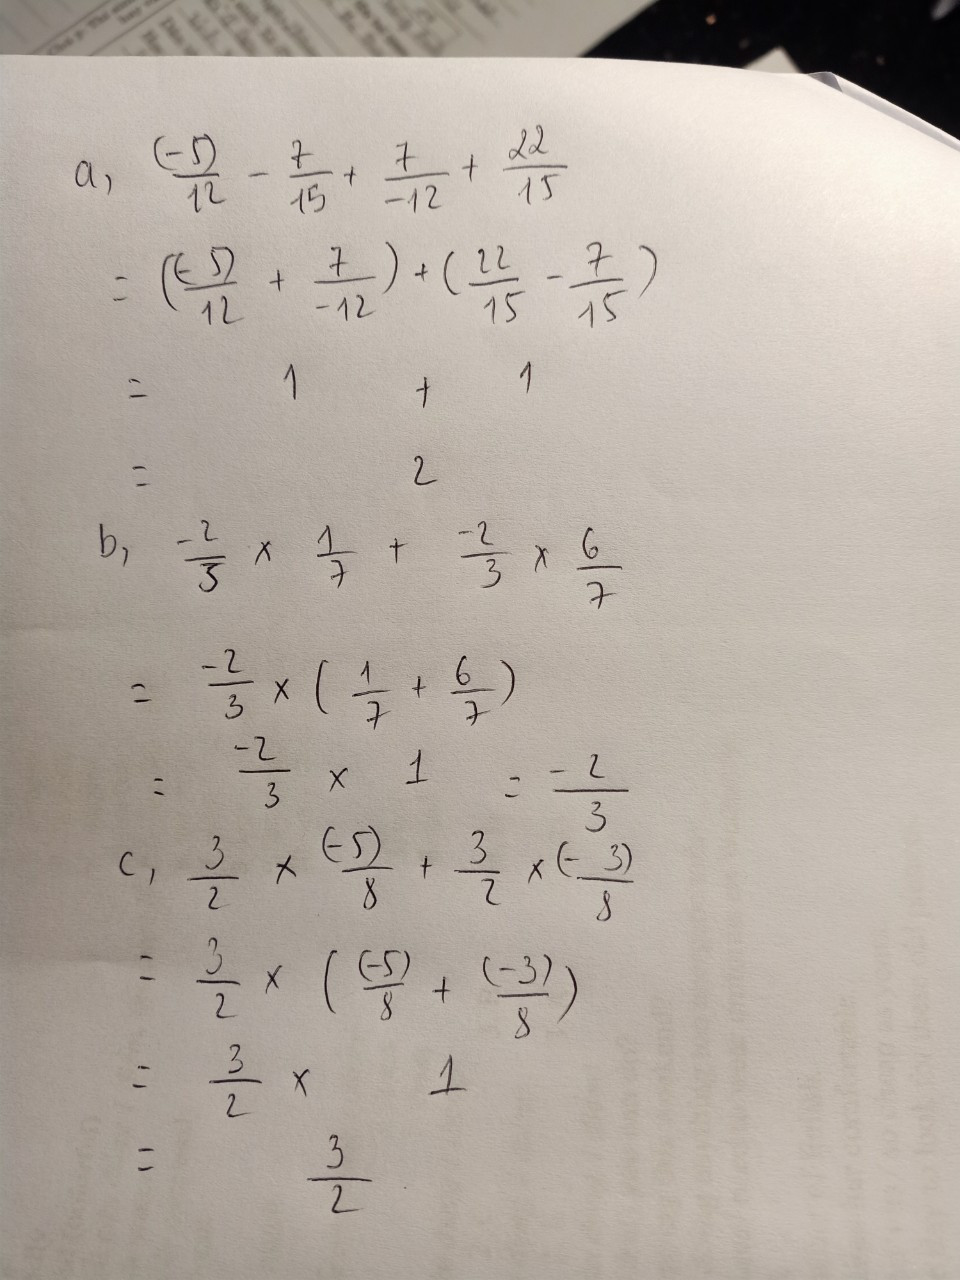 a, (-5)/12 - 7/15 + 7/-12 + 22/15
= ((-5)/12 + 7/-12) + (22/15 - 7/15)
= 1 + 1
= 2
b, -2/3 × 1/7 + -2/3 × 6/7
= -2/3 × (1/7 + 6/7)
= -2/3 × 1 = -2/3
c, 3/2 × (-5)/8 + 3/2 × (-3)/8
= 3/2 × ((-5)/8 + (-3)/8)
= 3/2 × 1
= 3/2